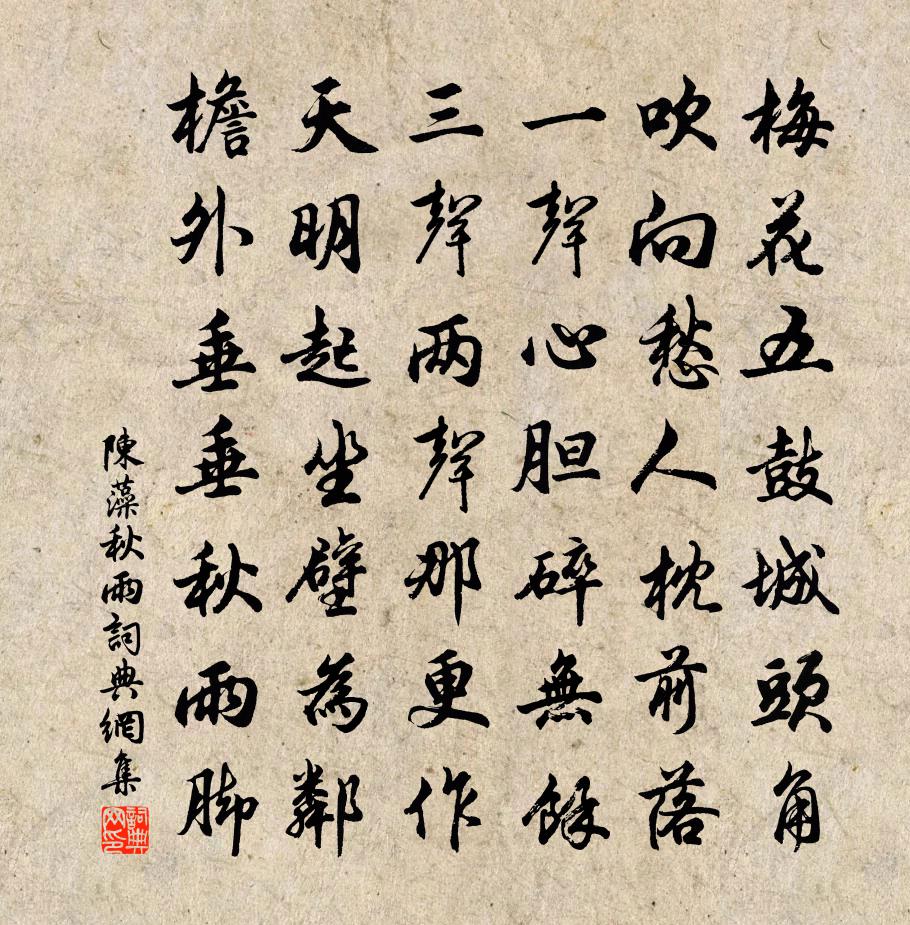 梅花五鼓城頭角
吹向愁人枕前落
一聲心胆碎無餘
三聲两聲那更作
天明起坐壁為鄰
檐外垂垂秋雨脚
陳藻秋雨詞典網集
詞典网印